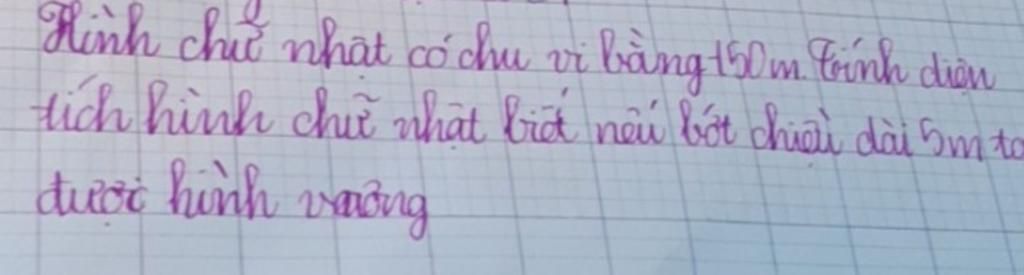 Hình chữ nhật có chu vi bằng 150m. Tính diện
tích hình chữ nhật biết nếu bớt chiều dài 5m ta
được hình vuông